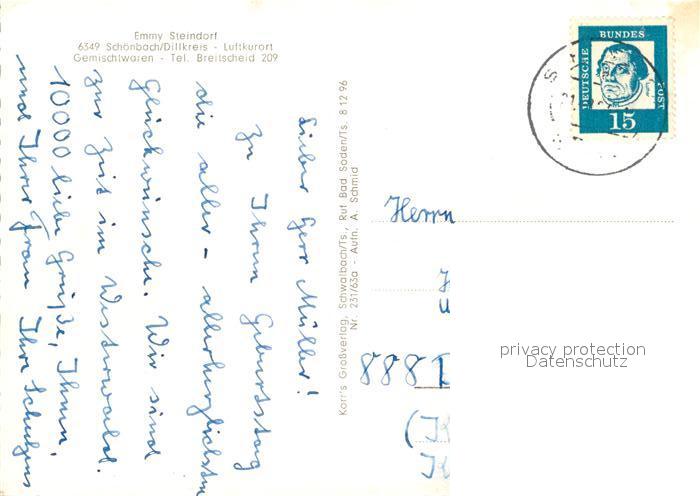 Emmy Steindorf
6349 Schönbach/Dillkreis - Luftkurort
Gemischtwaren - Tel. Breitscheid 209
Lieber Herr Müller!
Zu Ihrem Geburtstag
die aller- allerherzlichsten
Glückwünsche. Wir sind
zur Zeit im Westerwald.
10000 liebe Grüße, Ihnen,
und Ihrer Frau Ihre
Korr's Großverlag, Schwalbach/Ts., Ruf Bad Soden/Ts. 8 12 96
Nr. 231/63a - Aufn. A. Schmid
DEUTSCHE
BUNDES
POST
15
Herrn
888
privacy protection
Datenschutz